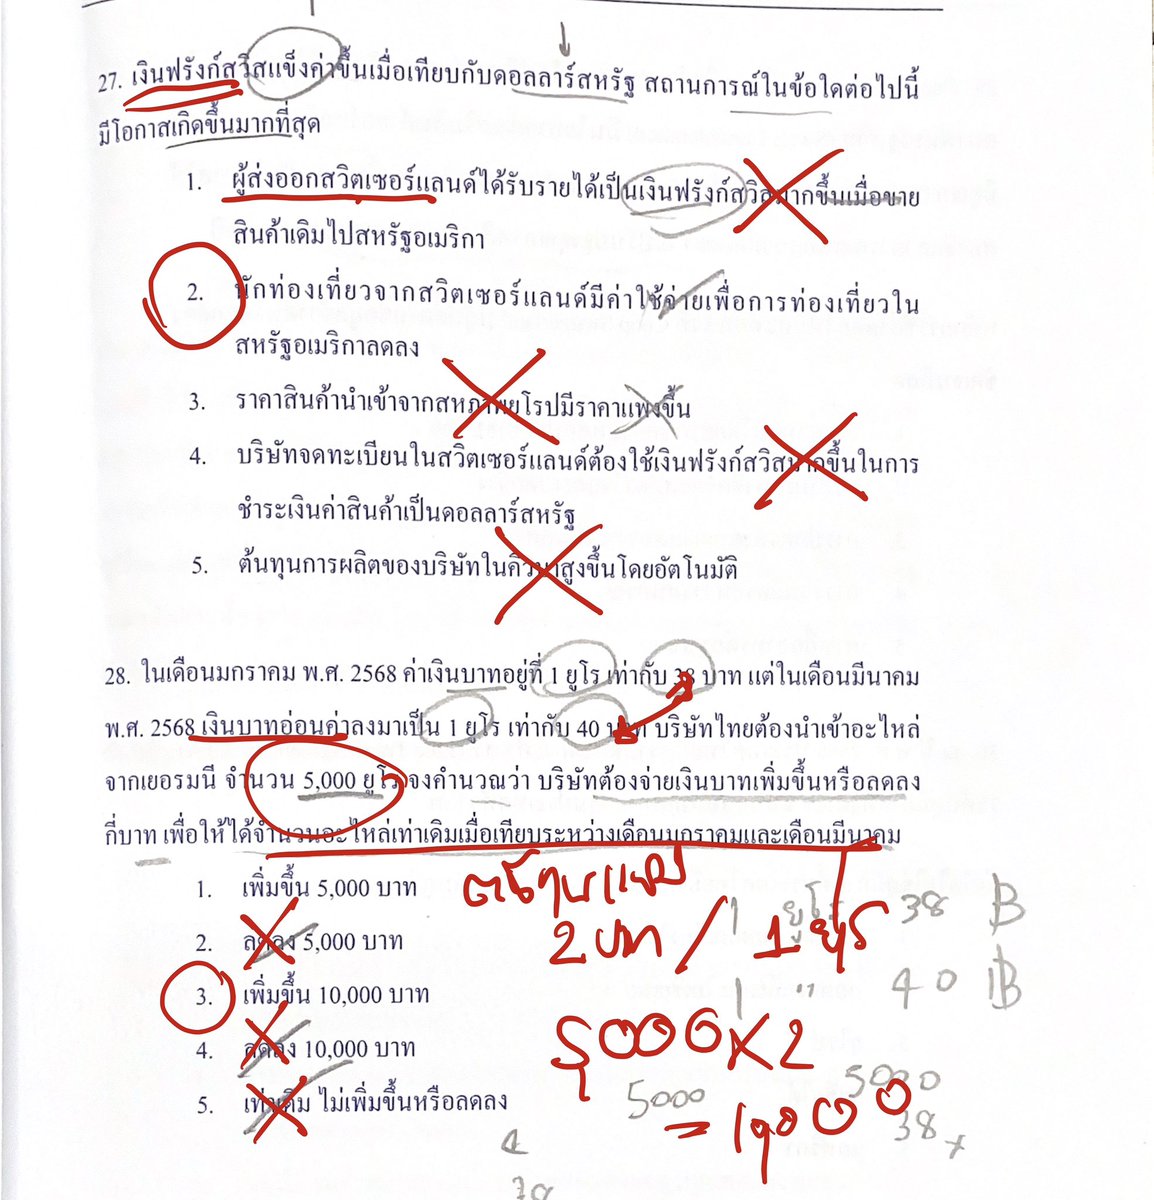 27. เงินฟรังก์สวิสแข็งค่าขึ้นเมื่อเทียบกับดอลลาร์สหรัฐ สถานการณ์ในข้อใดต่อไปนี้
มีโอกาสเกิดขึ้นมากที่สุด
1. ผู้ส่งออกสวิตเซอร์แลนด์ได้รับรายได้เป็นเงินฟรังก์สวิสมากขึ้นเมื่อขาย
สินค้าเดิมไปสหรัฐอเมริกา
2. นักท่องเที่ยวจากสวิตเซอร์แลนด์มีค่าใช้จ่ายเพื่อการท่องเที่ยวใน
สหรัฐอเมริกาลดลง
3. ราคาสินค้านำเข้าจากสหภาพยุโรปมีราคาแพงขึ้น
4. บริษัทจดทะเบียนในสวิตเซอร์แลนด์ต้องใช้เงินฟรังก์สวิสมากขึ้นในการ
ชำระเงินค่าสินค้าเป็นดอลลาร์สหรัฐ
5. ต้นทุนการผลิตของบริษัทในคิวบาสูงขึ้นโดยอัตโนมัติ
28. ในเดือนมกราคม พ.ศ. 2568 ค่าเงินบาทอยู่ที่ 1 ยูโร เท่ากับ 38 บาท แต่ในเดือนมีนาคม
พ.ศ. 2568 เงินบาทอ่อนค่าลงมาเป็น 1 ยูโร เท่ากับ 40 บาท บริษัทไทยต้องนำเข้าอะไหล่
จากเยอรมนี จำนวน 5,000 ยูโร จงคำนวณว่า บริษัทต้องจ่ายเงินบาทเพิ่มขึ้นหรือลดลง
กี่บาท เพื่อให้ได้จำนวนอะไหล่เท่าเดิมเมื่อเทียบระหว่างเดือนมกราคมและเดือนมีนาคม
1. เพิ่มขึ้น 5,000 บาท
2. ลดลง 5,000 บาท
3. เพิ่มขึ้น 10,000 บาท
4. ลดลง 10,000 บาท
5. เท่าเดิม ไม่เพิ่มขึ้นหรือลดลง
1 ยูโร 38 ฿
2 บาท / 1 ยูโร
1 " 40 ฿
5000 x 2
5000 5000
= 10000
38 x